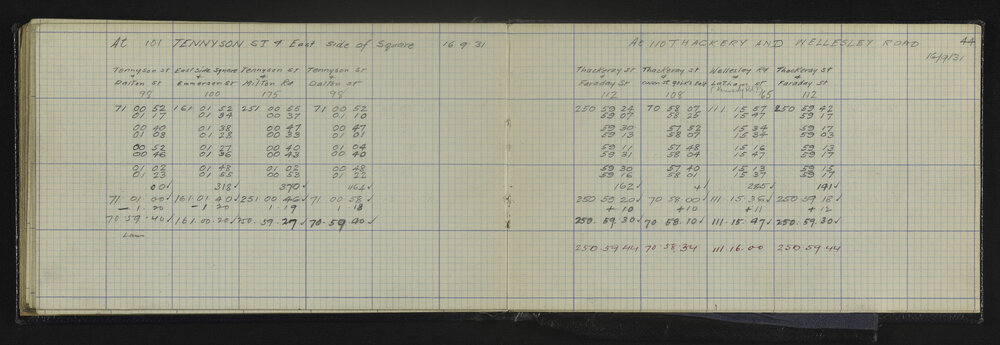 At 101 TENNYSON ST & East side of Square 16 9 31
Tennyson St East Side Square Tennyson St Tennyson St
& & & &
Dalton St Emmerson St Milton Rd Dalton St
98 100 175 98
71 00 52 161 01 52 251 00 55 71 00 52
01 17 01 34 00 37 01 10
00 40 01 38 00 47 00 47
01 08 01 28 00 33 01 01
00 52 01 27 00 40 01 04
00 46 01 36 00 43 00 40
01 02 01 48 01 02 00 48
01 23 01 55 00 53 01 22
00✓ 318✓ 370✓ 464✓
71 01 00✓ 161 01 40✓ 251 00 46✓ 71 00 58✓
- 1.20 - 1 20 1.19 1.18
70.59.40✓ 161.00.20✓ 250.59.27✓ 70.59.40✓
At 110 THACKERY AND WELLESLEY ROAD 44
16/9/31
Thackeray St Thackeray St Wellesley Rd Thackeray St
& & & &
Faraday St Latham St Faraday St
112 108 165 112
250 59 24 70 58 07 111 15 57 250 59 42
59 07 58 25 15 47 59 17
59 30 57 52 15 34 59 17
59 13 58 07 15 34 59 03
59 11 57 48 15 16 59 13
59 31 58 04 15 47 59 17
59 30 57 40 15 13 59 15
59 16 58 01 15 37 59 17
162✓ 4✓ 285✓ 141✓
250 59 20✓ 70 58 00✓ 111 15 36✓ 250 59 18✓
+ 10 +10 +11 + 12
250.59.30✓ 70 58.10✓ 111.15.47✓ 250.59.30✓
250.59.44 70.58.34 111 16.00 250.59.44